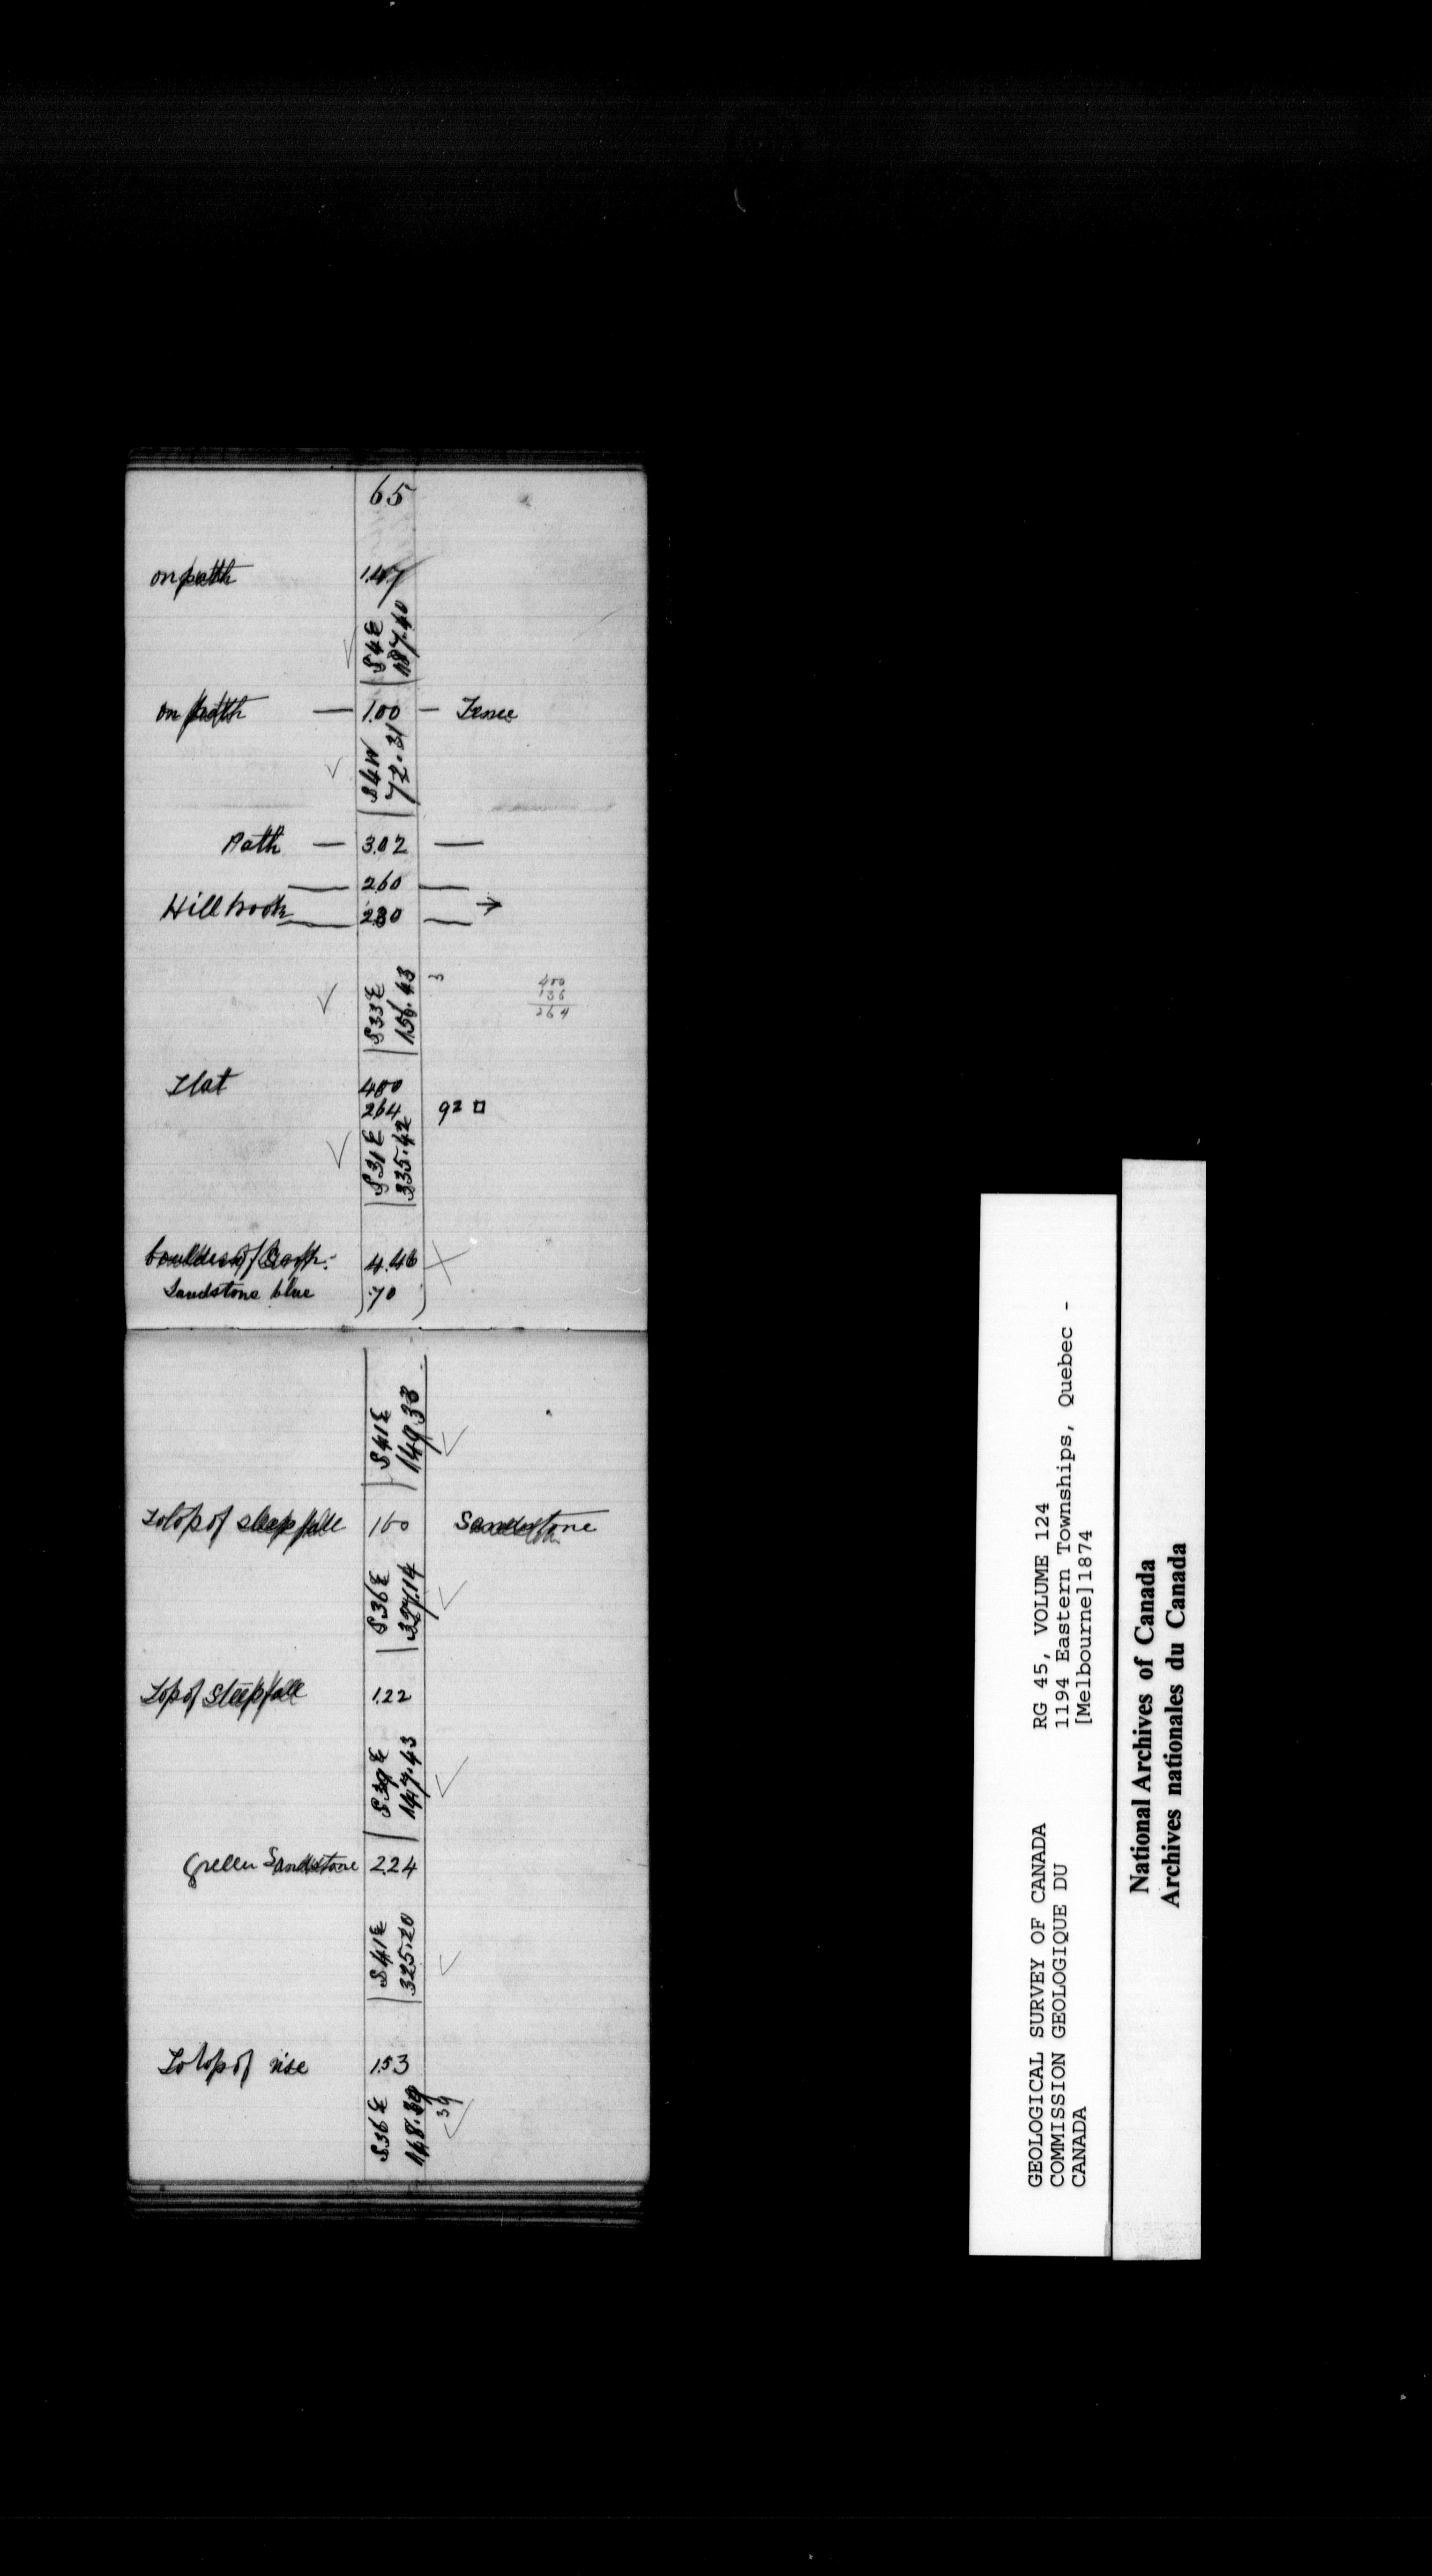 65
on path 1.47
S4E
187.40
on path — 1.00 — Fence
S4W
72.31
Path — 3.02 —
2.60
Hill brook 2.30 →
S33E
156.43 3
400
136
264
Flat 400
264 92 □
S31E
335.42
boulders of 4.46 X
Sandstone blue .70
S41E
149.33
To top of steep fall 100 Sandstone
S36E
327.14
Top of Steep fall 1.22
S39E
147.43
Green Sandstone 2.24
S41E
325.20
To top of rise 1.53
S36E
148.39 39
GEOLOGICAL SURVEY OF CANADA
COMMISSION GEOLOGIQUE DU
CANADA
RG 45, VOLUME 124
1194 Eastern Townships, Quebec -
[Melbourne]1874
National Archives of Canada
Archives nationales du Canada